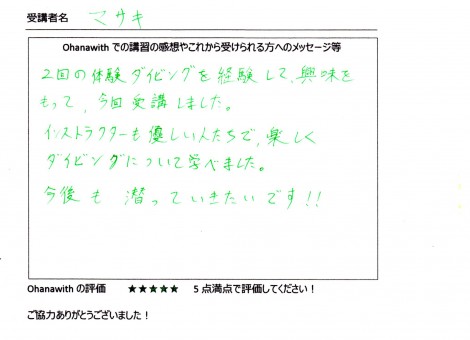 受講者名 マサキ
Ohanawith での講習の感想やこれから受けられる方へのメッセージ等
2回の体験ダイビングを経験して、興味を
もって、今回受講しました。
インストラクターも優しい人たちで、楽しく
ダイビングについて学べました。
今後も 潜っていきたいです!!
Ohanawith の評価 ★★★★★ 5 点満点で評価してください！
ご協力ありがとうございました！